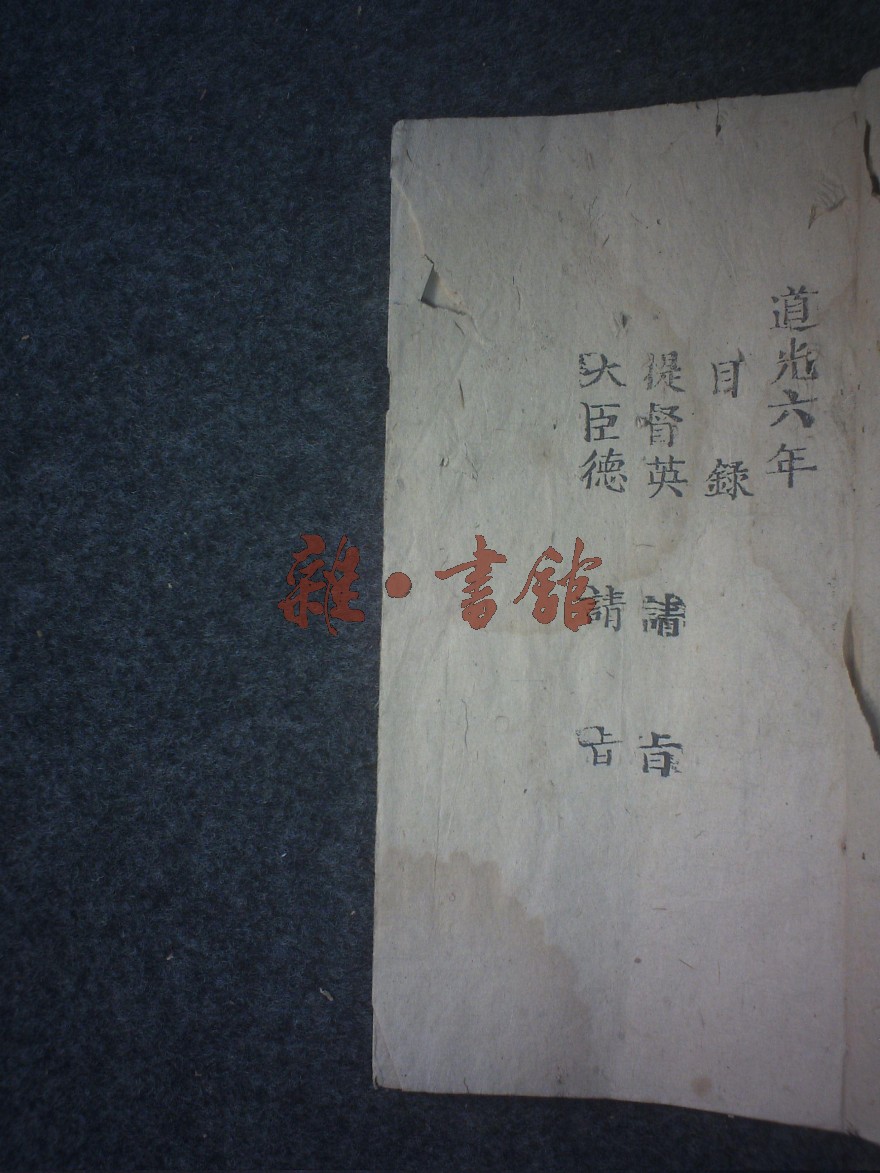 道光六年
目錄
提督英 請 旨
大臣德 請 旨
雜·書館